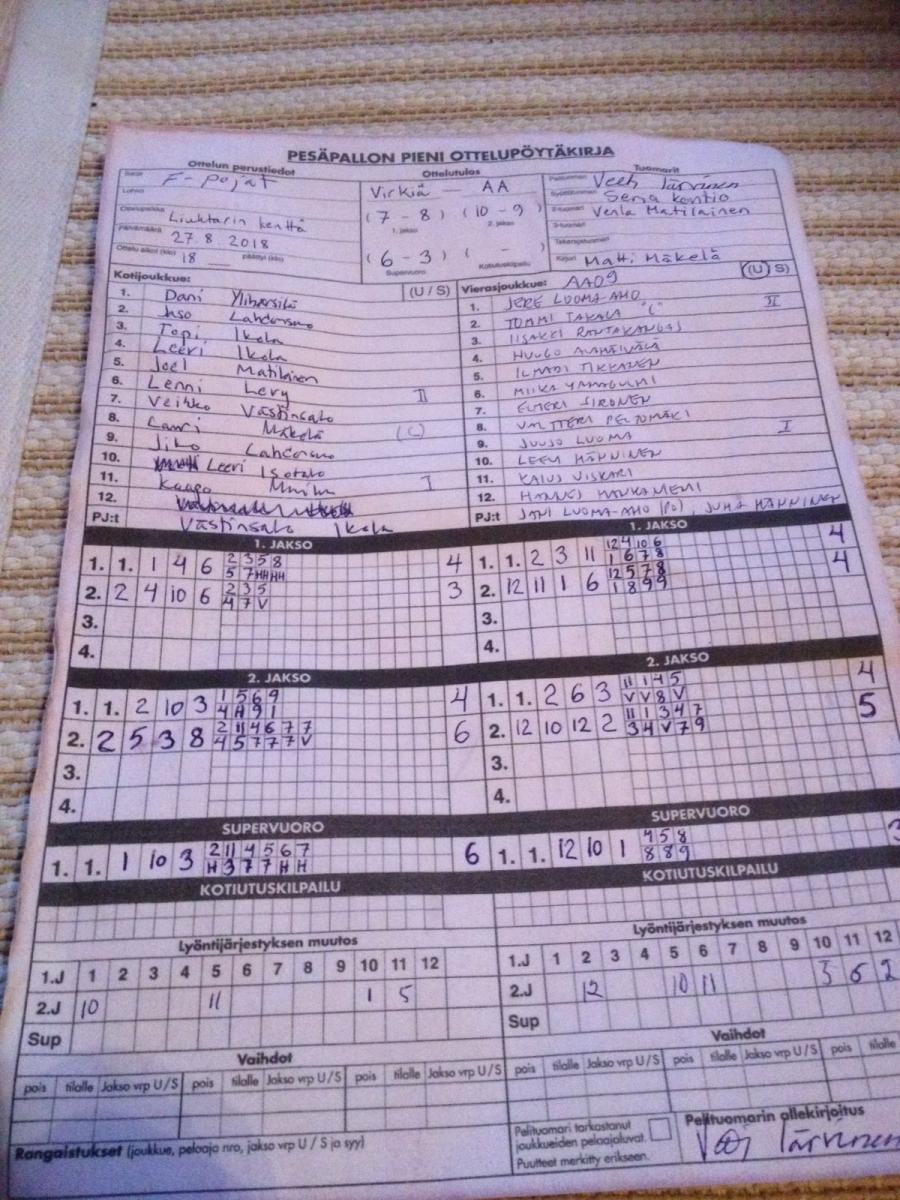 PESÄPALLON PIENI OTTELUPÖYTÄKIRJA
Ottelun perustiedot
Ottelutulos
Tuomarit
Sarja
F-pojat
Lohko
Ottelupaikka
Liuhtarin kenttä
Päivämäärä
27.8 2018
Ottelu alkoi (klo)
18
päättyi (klo)
Virkiä — AA
(7 - 8) (10 - 9)
1. jakso 2. jakso
(6 - 3) ( - )
Supervuoro Kotiutuskilpailu
Pelituomari
Veeti Järvinen
Syöttötuomari
Senja Kontio
2-tuomari
Venla Matilainen
3-tuomari
Takarajatuomari
Kirjuri
Matti Mäkelä
Kotijoukkue: (U / S)
1. Dani
2. Lahdensuo
3. Topi Ikola
4. Leevi Ikola
5. Joel Matilainen
6. Lenni Levy II
7. Veikko Västinsalo
8. Lauri Mäkelä (C)
9. Lahdensuo
10. Leevi Isotalo
11. Kaapo I
12.
PJ:t Västinsalo Ikola
Vierasjoukkue: AA09 (U / S)
1. JERE LUOMA-AHO II
2. TOMMI TAKALA "C"
3. IISAKKI RANTAKANGAS
4. HUUGO ALAHEIVÄLÄ
5. ILMARI TIKKANEN
6. MIIKA
7. ELMERI SIRONEN
8. VALTTERI PELTOMÄKI I
9. JUUSO LUOMA
10. LEEVI HÄNNINEN
11. KAIUS VISKARI
12. HANNES HAUKANIEMI
PJ:t JANI LUOMA-AHO (PJ), JUHA HÄNNINEN
1. JAKSO
1. 1. 1 4 6 2 3 5 8 4
5 7 H H H H
2. 2 4 10 6 2 3 5 3
4 7 V
3.
4.
1. JAKSO
1. 1. 2 3 11 12 4 10 6 4
1 6 7 8
2. 12 11 1 6 12 5 7 8 4
1 8 9 9
3.
4.
2. JAKSO
1. 1. 2 10 3 1 5 6 9 4
4 H 9 1
2. 2 5 3 8 2 11 4 6 7 7 6
4 5 7 7 7 V
3.
4.
2. JAKSO
1. 1. 2 6 3 11 1 4 5 4
V V 8 V
2. 12 10 12 2 11 1 3 4 7 5
3 4 V 7 9
3.
4.
SUPERVUORO
1. 1. 1 10 3 2 11 4 5 6 7 6
H 3 7 7 H H
SUPERVUORO
1. 1. 12 10 1 4 5 8 3
8 8 9
KOTIUTUSKILPAILU
KOTIUTUSKILPAILU
Lyöntijärjestyksen muutos
1.J 1 2 3 4 5 6 7 8 9 10 11 12
2.J 10 11 1 5
Sup
Lyöntijärjestyksen muutos
1.J 1 2 3 4 5 6 7 8 9 10 11 12
2.J 12 10 11 5 6 2
Sup
Vaihdot
pois tilalle Jakso vrp U / S pois tilalle Jakso vrp U / S pois tilalle Jakso vrp U / S
Vaihdot
pois tilalle Jakso vrp U / S pois tilalle Jakso vrp U / S pois tilalle
Rangaistukset (joukkue, pelaaja nro, jakso vrp U / S ja syy)
Pelituomari tarkastanut
joukkueiden pelaajaluvat.
Puutteet merkitty erikseen.
Pelituomarin allekirjoitus
Järvinen